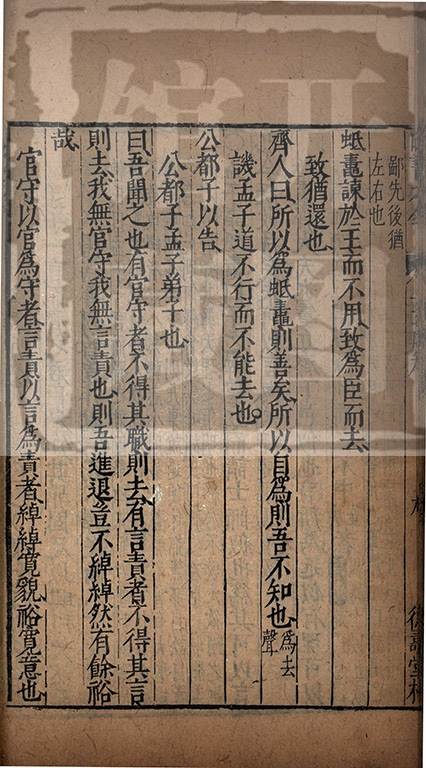 鄙先後猶
左右也
蚳鼃諫於王而不用致為臣而去
致猶還也
齊人曰所以為蚳鼃則善矣所以自為則吾不知也為去聲
譏孟子道不行而不能去也
公都子以告
公都子孟子弟子也
曰吾聞之也有官守者不得其職則去有言責者不得其言
則去我無官守我無言責也則吾進退豈不綽綽然有餘裕
哉
官守以官為守者言責以言為責者綽綽寛貌裕寛意也